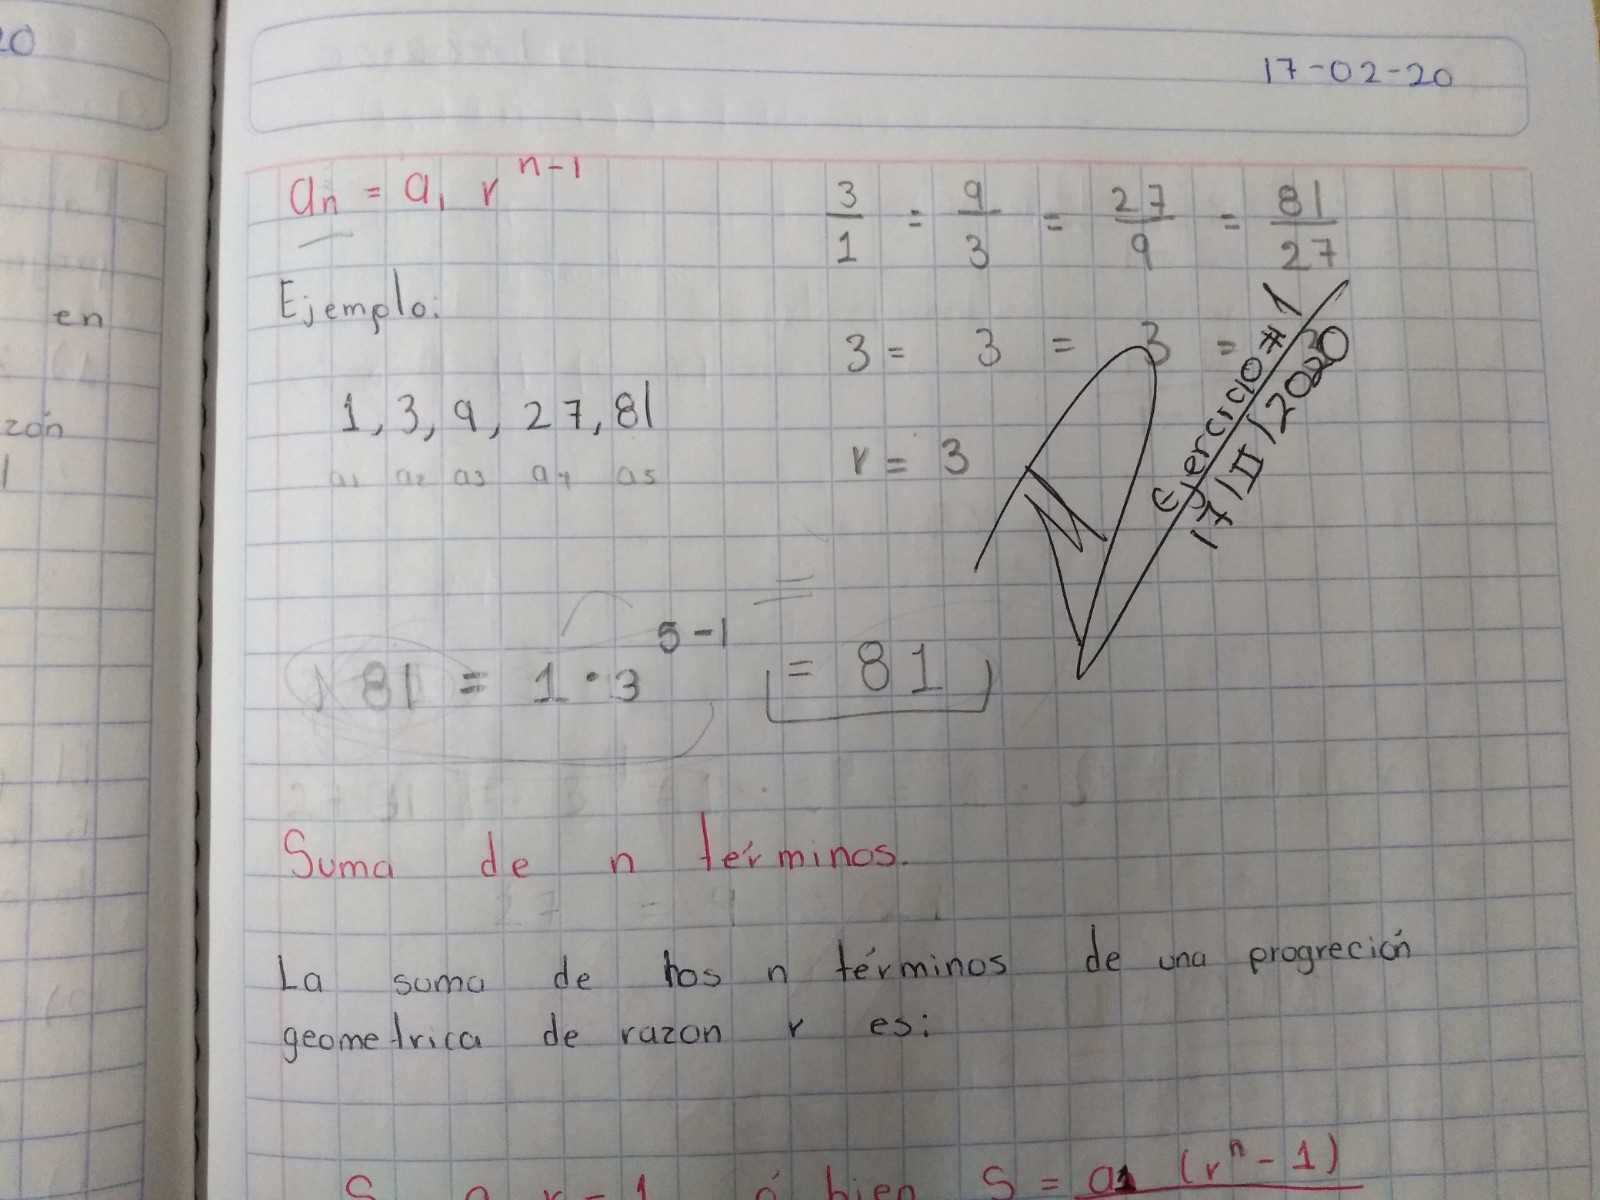 20
en
zón
17-02-20
an = a1 r^n-1
3/1 = 9/3 = 27/9 = 81/27
Ejemplo:
3 = 3 = 3 =
1, 3, 9, 27, 81
a1 a2 a3 a4 a5
r = 3
Ejercicio #1
17/II/2020
81 = 1 · 3^5-1 = 81
Suma de n términos.
La suma de los n términos de una progreción
geometrica de razon r es:
ó bien S = a1 (r^n - 1)